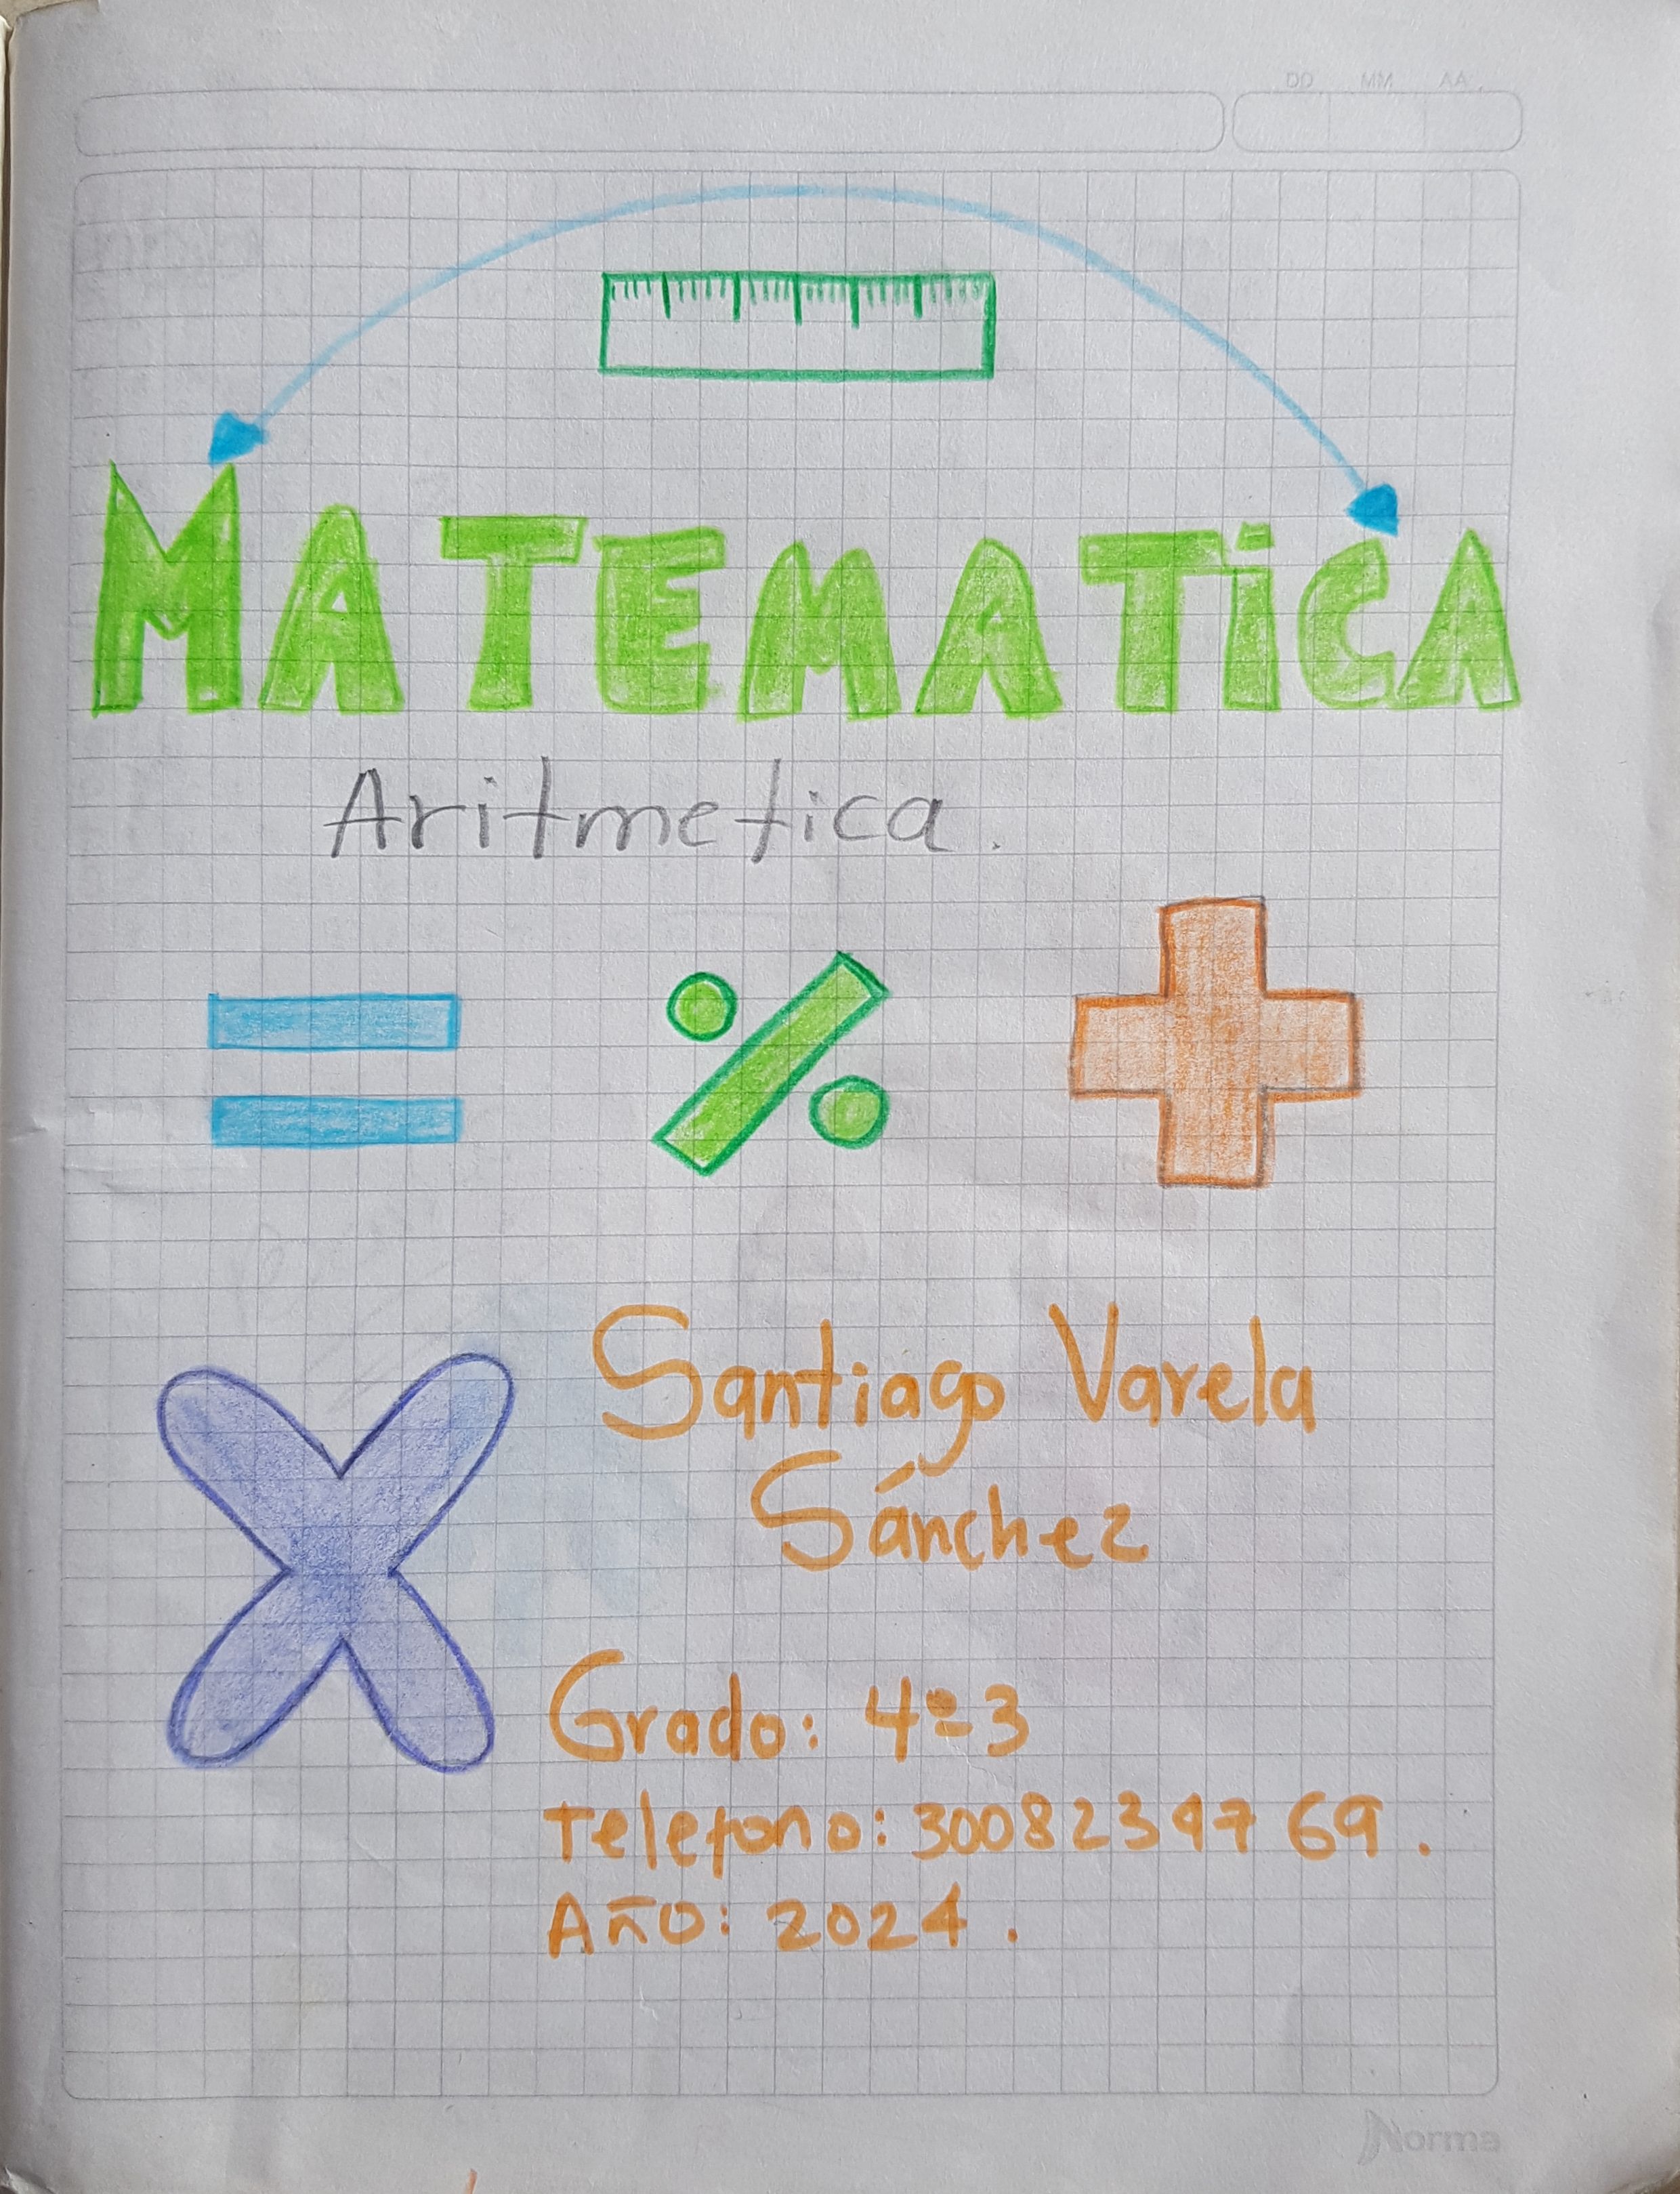 DD MM AA
MATEMATiCA
Aritmetica.
= % +
X
Santiago Varela
Sánchez
Grado: 4º-3
Telefono: 3008239769.
Año: 2024.
Norma